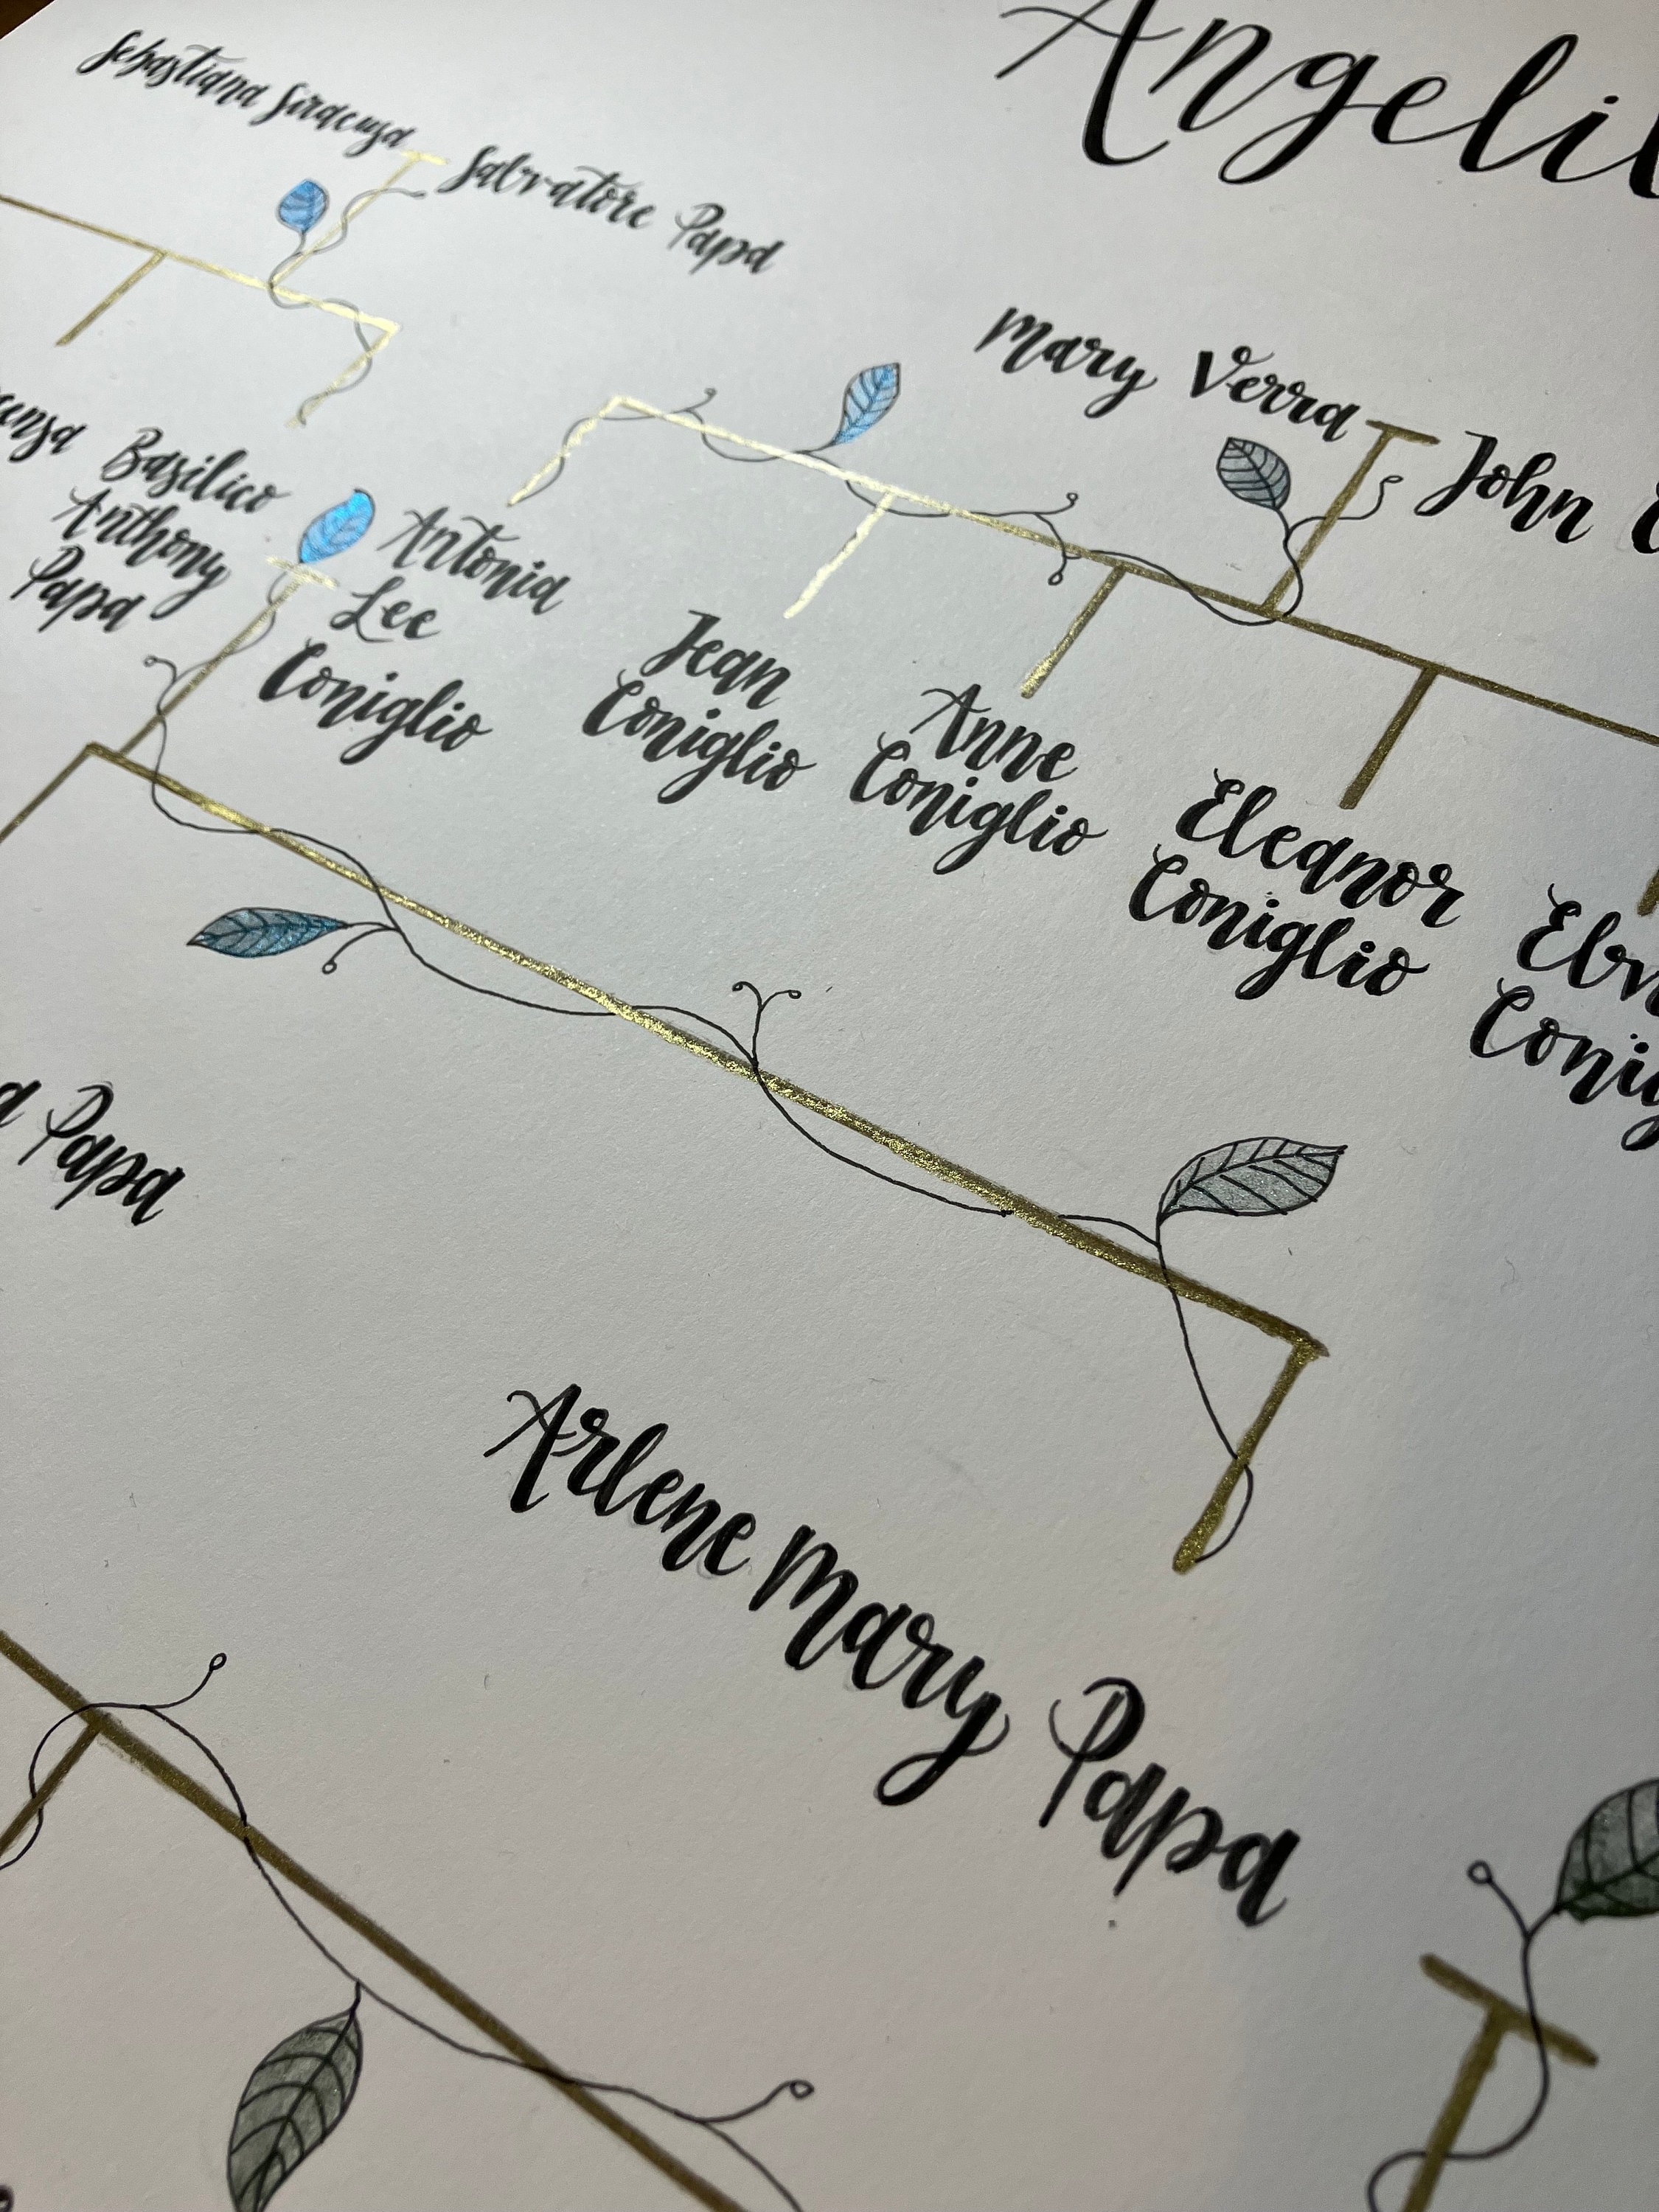 Sebastiana Siracusa
Salvatore Papa
Mary Verra
John
Basilico
Anthony
Papa
Antonia
Lee
Coniglio
Jean
Coniglio
Anne
Coniglio
Eleanor
Coniglio
Papa
Arlene Mary Papa